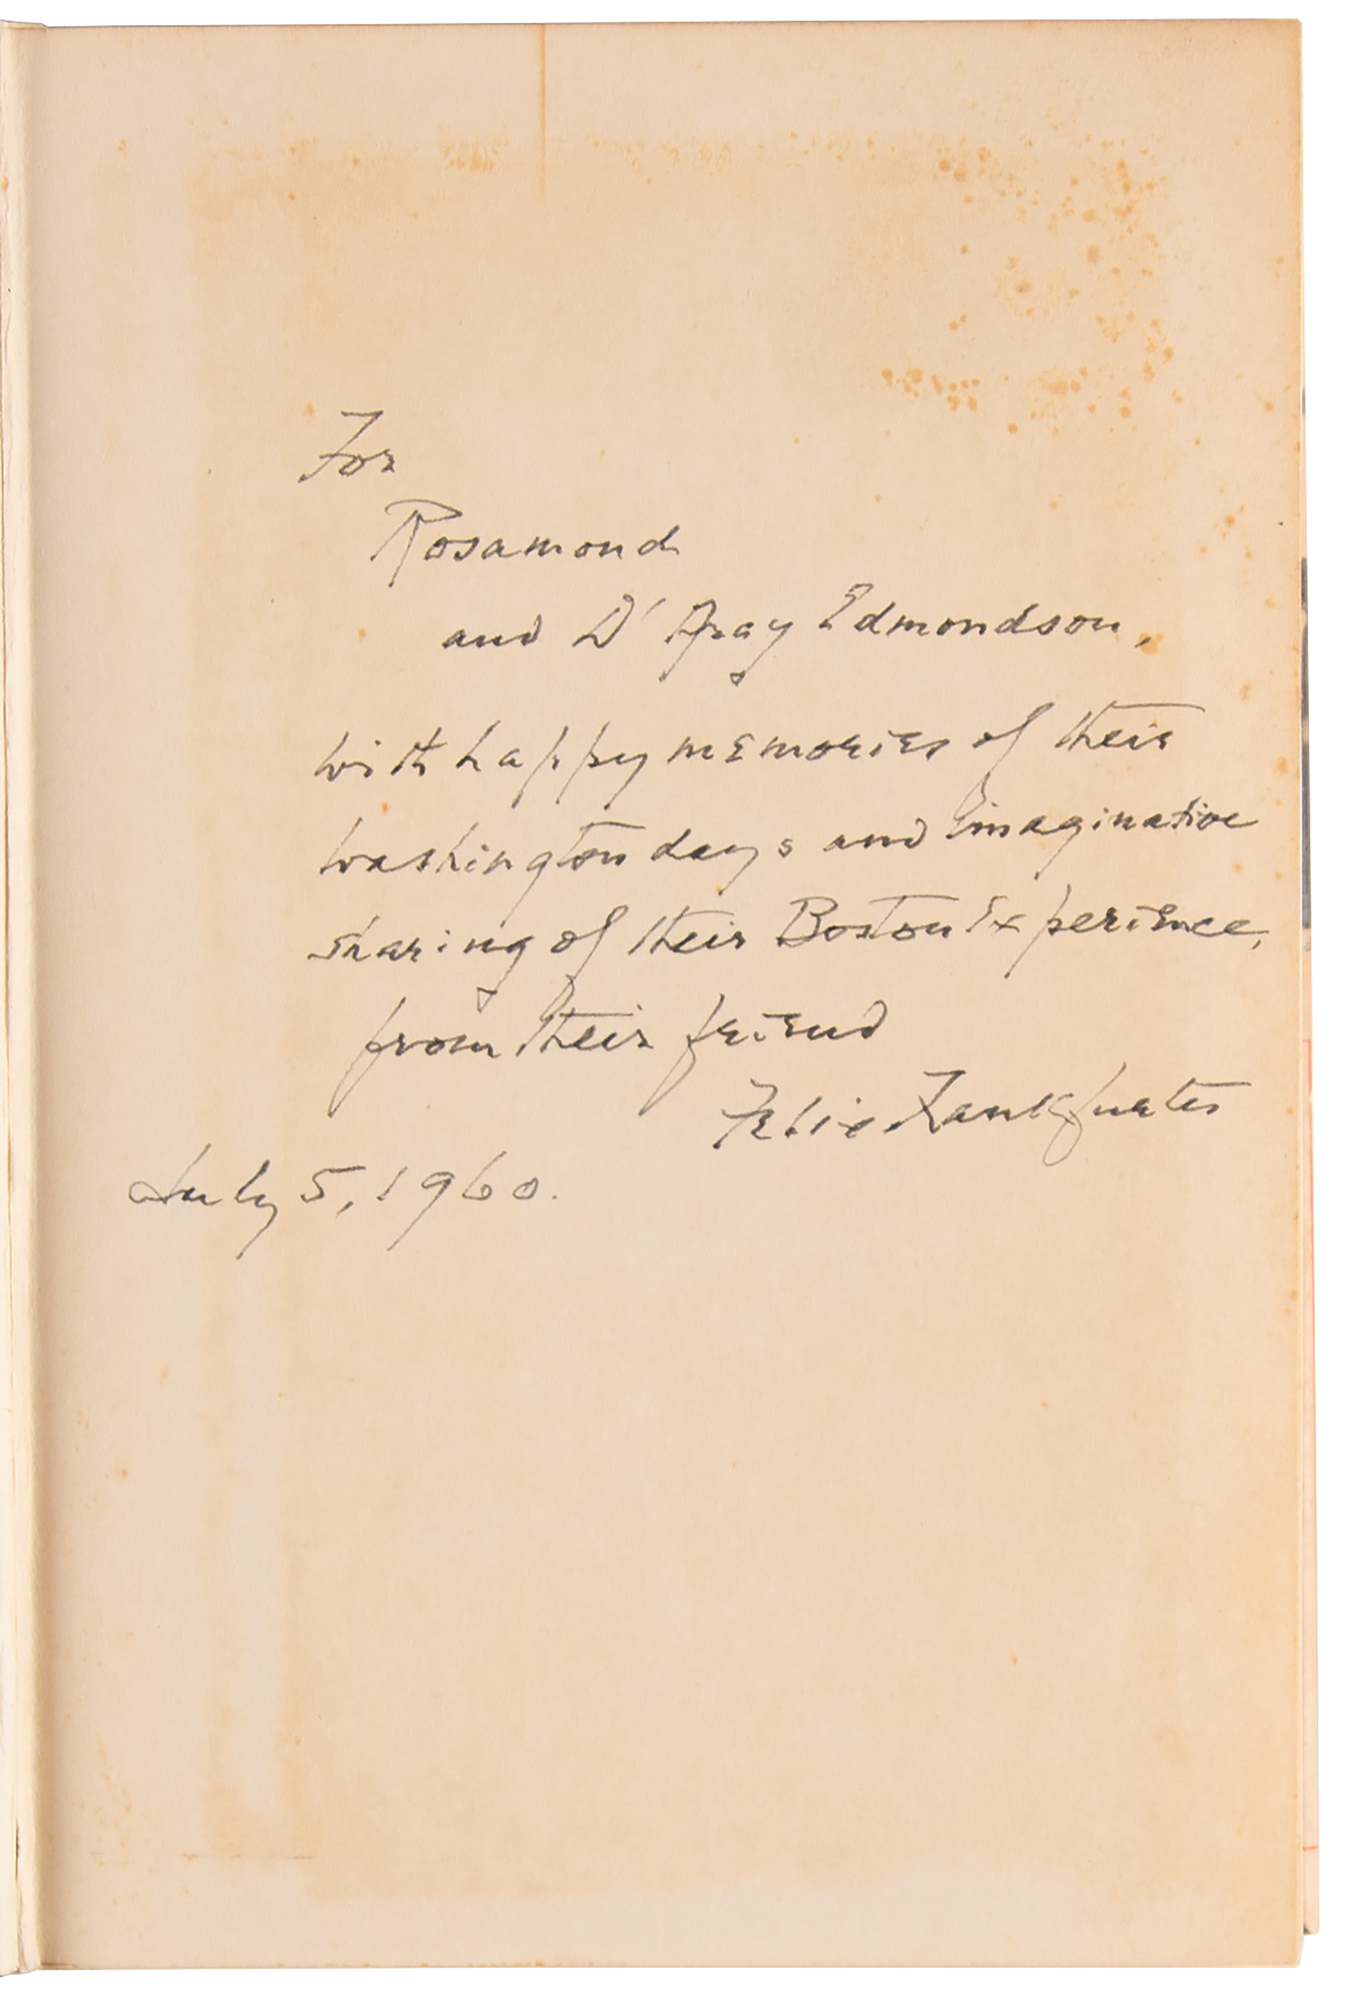 For
Rosamond
and D'Aray Edmondson,
with happy memories of their
Washington days and imaginative
sharing of their Boston Experience,
from their friend
Felix Frankfurter
July 5, 1960.